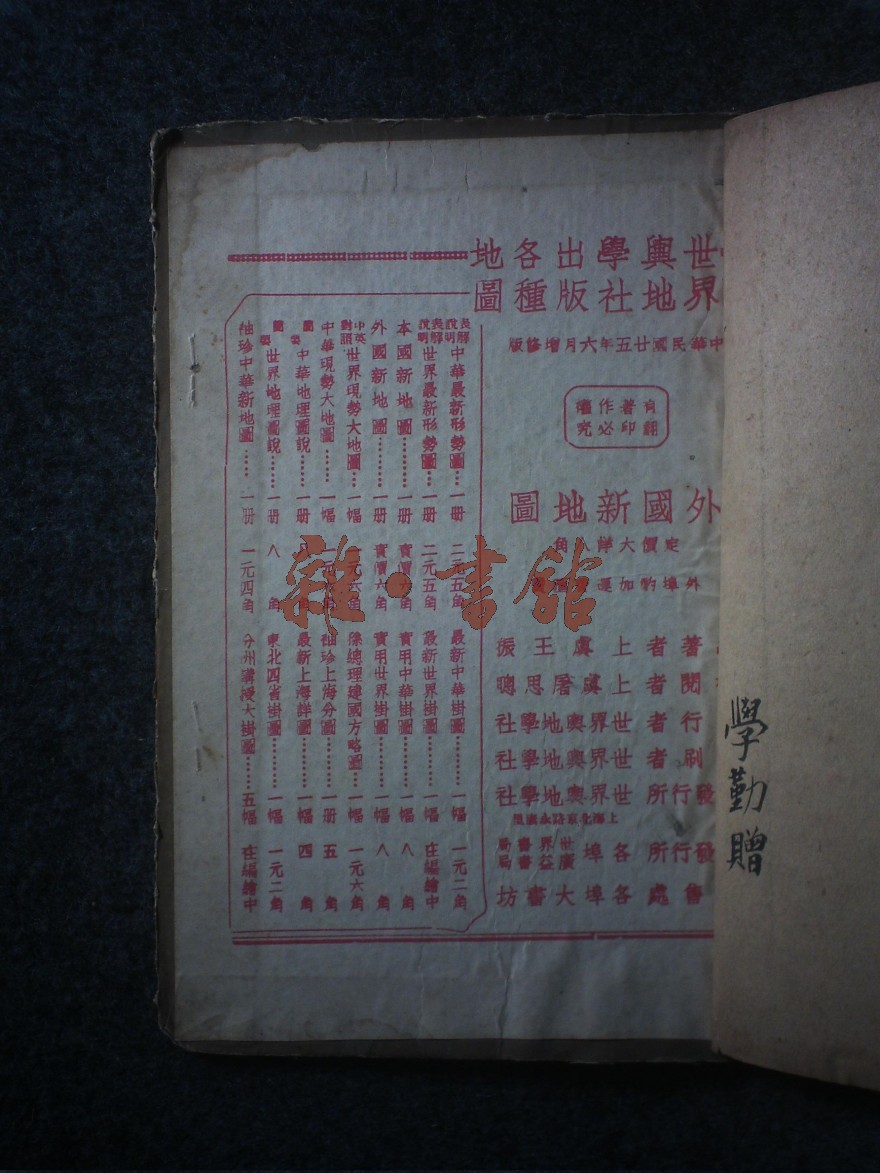 世界輿地學社出版各種地圖
中華民國廿五年六月增修版
有著作權
翻印必究
外國新地圖
定價大洋 角
外埠酌加運
著者 上虞王振
閱者 上虞屠思聰
行者 世界輿地學社
刷者 世界輿地學社
發行所 世界輿地學社
上海北京路永
發行所 各埠 世界書局 廣益書局
售處 各埠大書坊
表解說明 中華最新形勢圖……一册 二元五角
表解說明 世界最新形勢圖……一册 二元五角
本國新地圖………一册 實價六角
外國新地圖………一册 實價六角
中英對照 世界現勢大地圖……一幅 一元六角
中華現勢大地圖……一幅 一元六角
中華地理圖說……一册 角
世界地理圖說……一册 八角
袖珍中華新地圖……一册 一元四角
最新中華掛圖………一幅 一元二角
最新世界掛圖………一幅 在編繪中
實用中華掛圖………一幅 八角
實用世界掛圖………一幅 八角
孫總理建國方略圖……一幅 一元六角
袖珍上海分圖………一册 五角
最新上海詳圖………一幅 四角
東北四省掛圖………一幅 一元二角
分州講授大掛圖……五幅 在編繪中
雜·書館
學勤贈